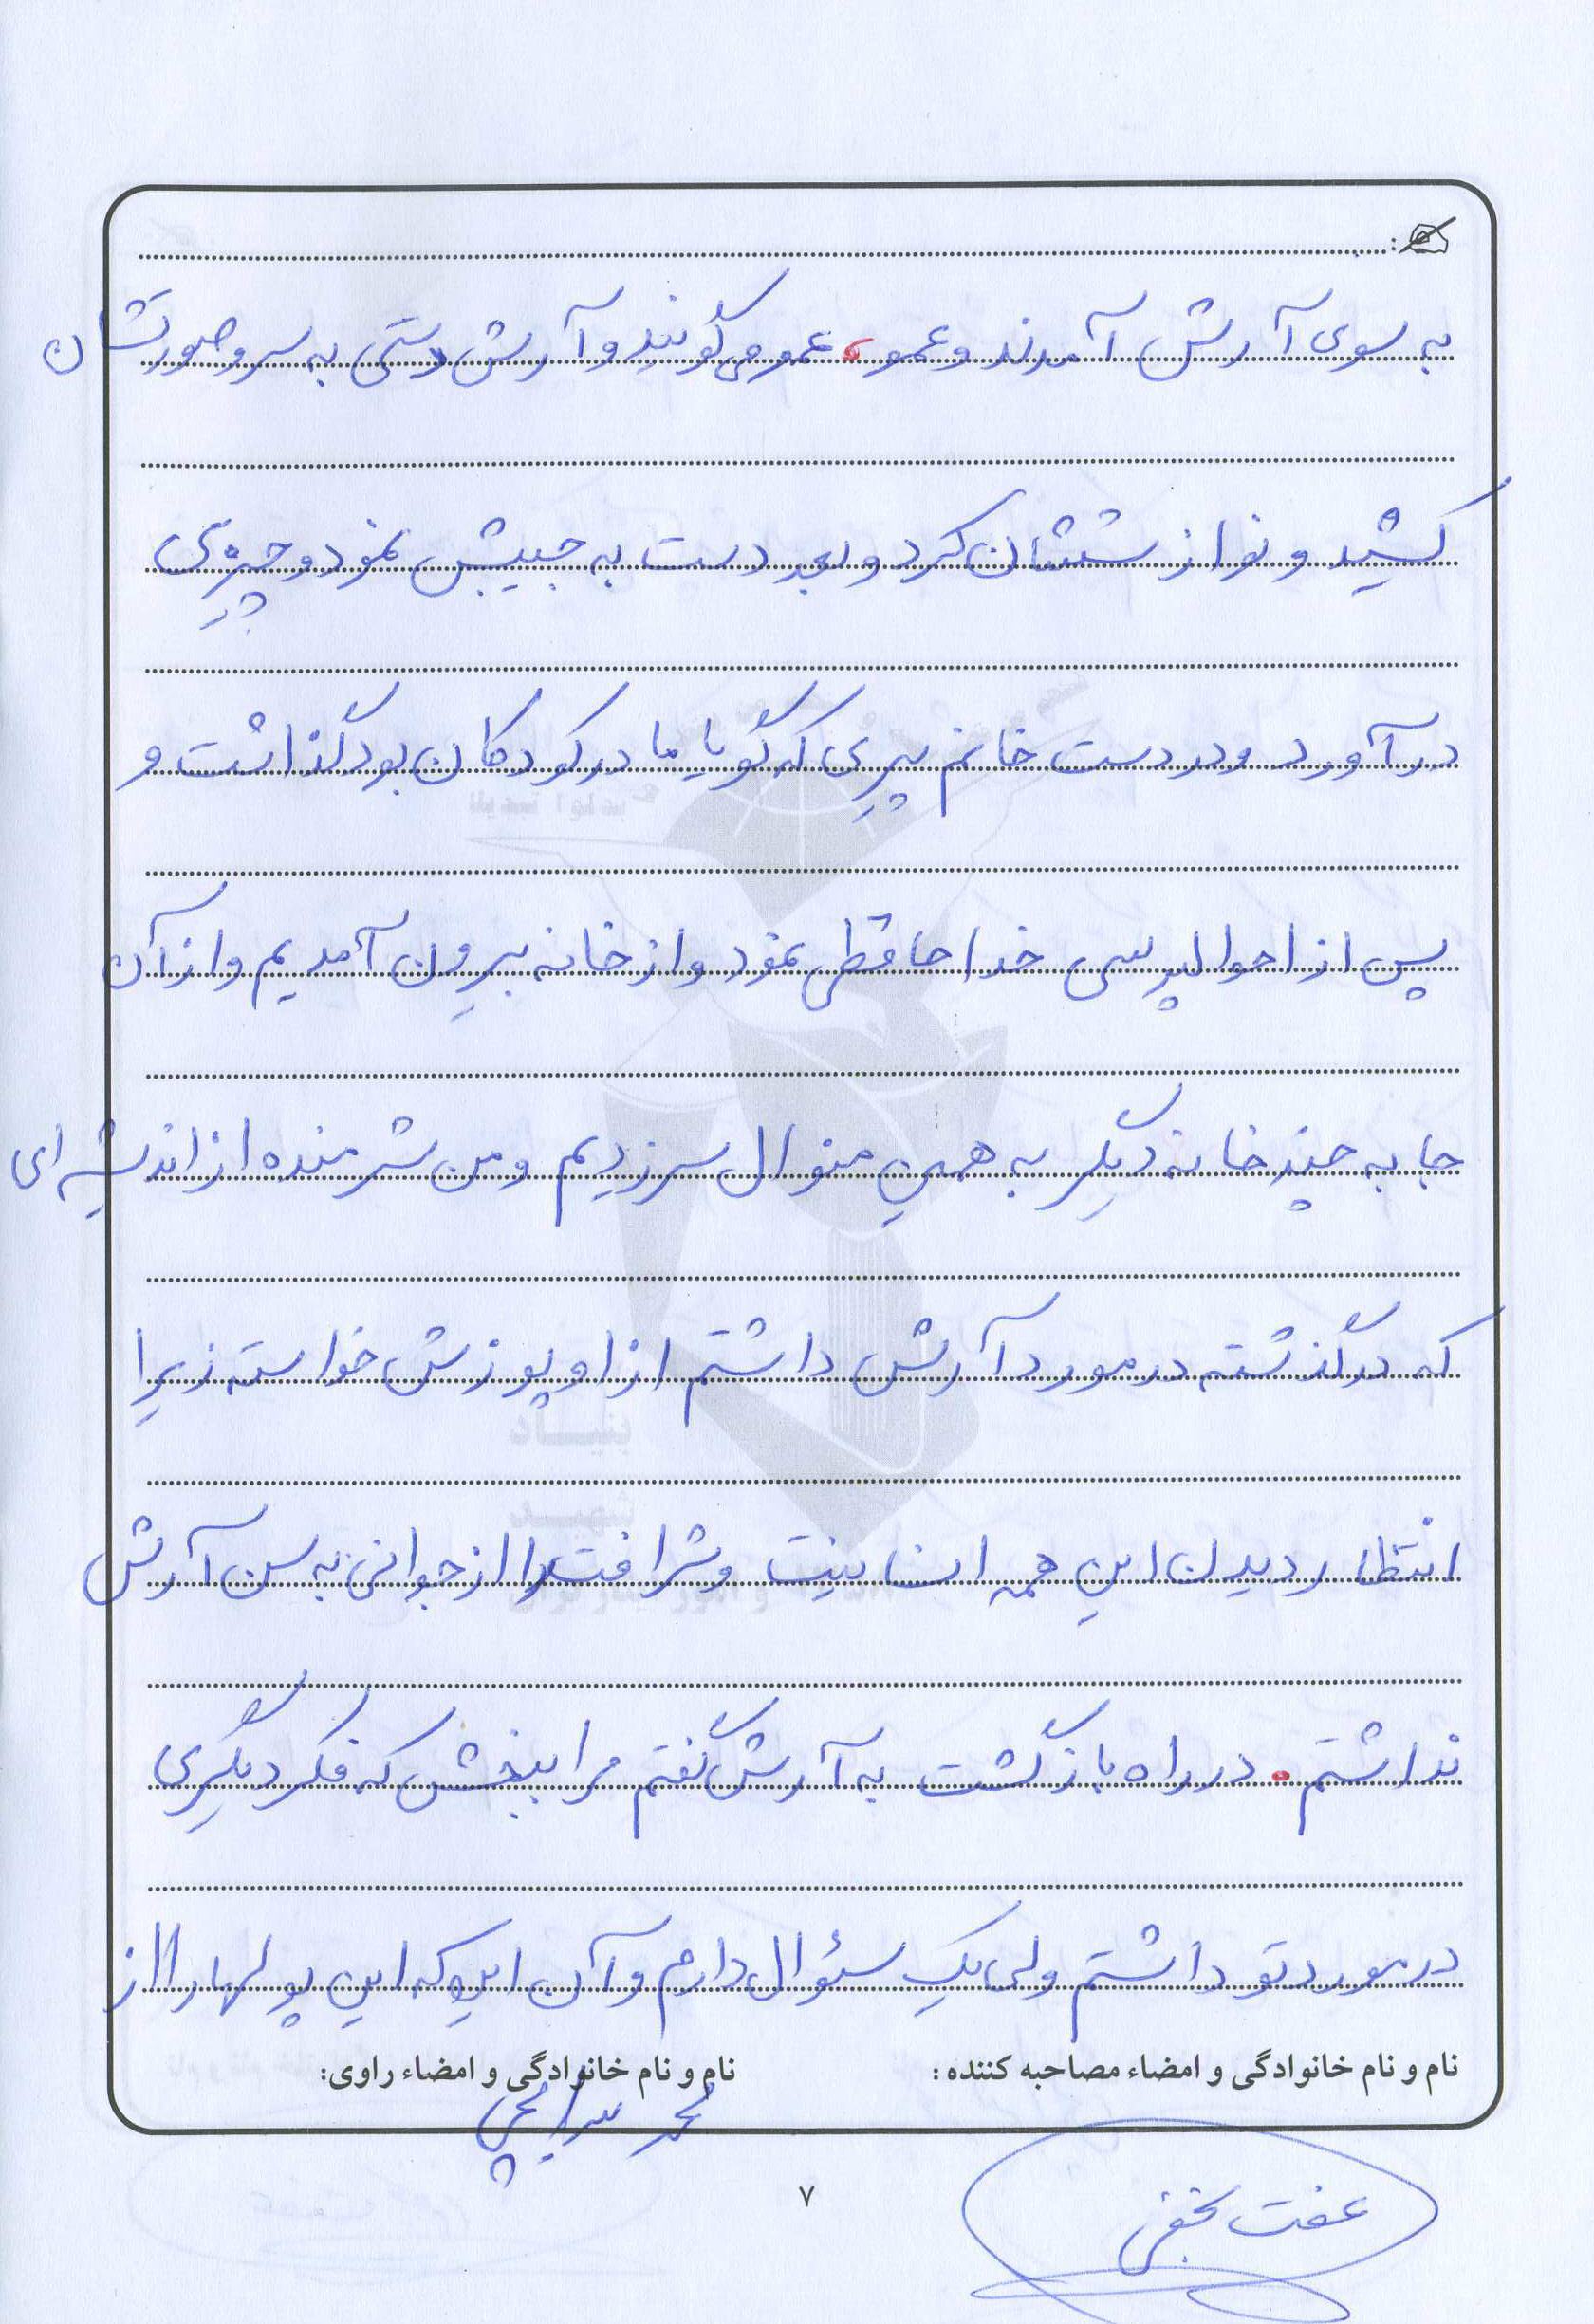 به سوی آرش آمدند و عمو، عمو می گویند و آرش دستی به سر و صورتشان
کشید و نوازششان کرد و بعد دست به جیبش نمود و چیزی
درآورد و در دست خانم پیری که گویا مادر کودکان بود گذاشت و
پس از احوالپرسی خداحافظی نمود و از خانه بیرون آمدیم و از آن
جا به چند خانه دیگر به همین منوال سر زدیم و من شرمنده از اندیشه ای
که در گذشته در مورد آرش داشتم از او پوزش خواسته زیرا
انتظار دیدن این همه انسانیت و شرافت را از جوانی به سن آرش
نداشتم. در راه بازگشت به آرش گفتم مرا ببخش که فکر دیگری
در مورد تو داشتم ولی یک سئوال دارم و آن اینکه این پولها را از
نام و نام خانوادگی و امضاء مصاحبه کننده: نام و نام خانوادگی و امضاء راوی:
محمد
۷
عفت